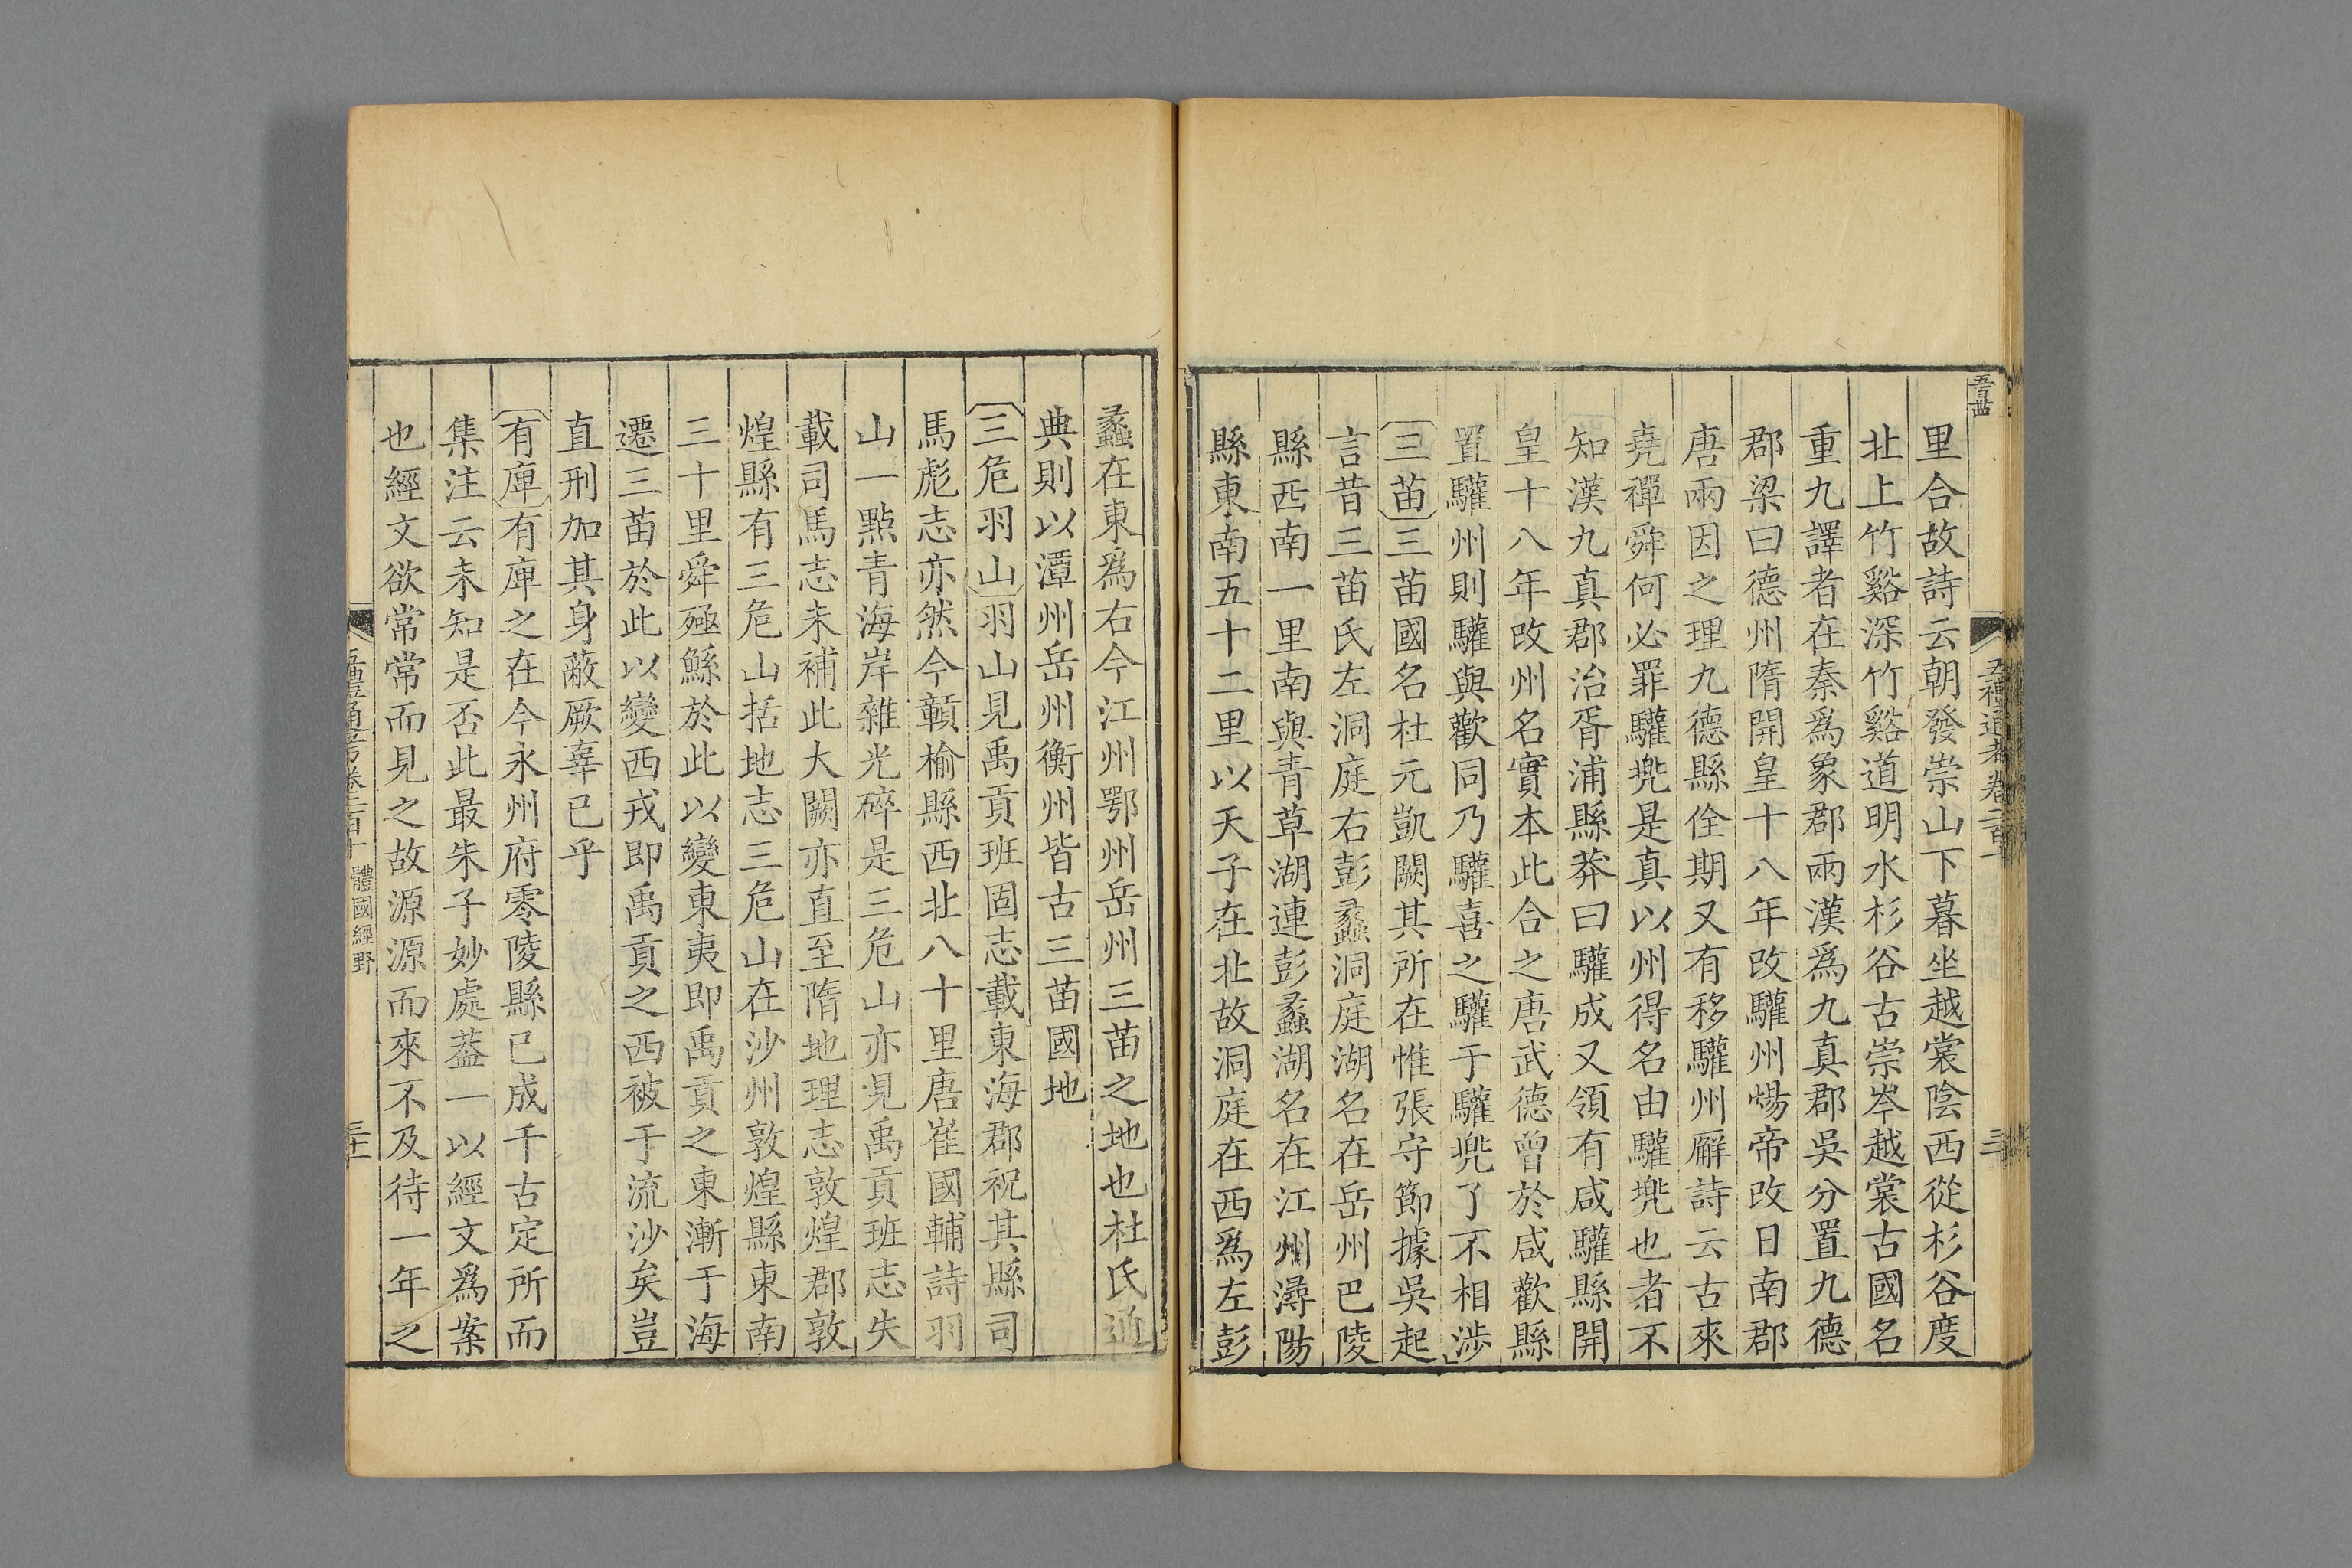 里合故詩云朝發崇山下暮坐越裳陰西從杉谷度
北上竹谿深竹谿道明水杉谷古崇岑越裳古國名
重九譯者在秦爲象郡兩漢爲九真郡吳分置九德
郡梁曰德州隋開皇十八年改驩州煬帝改日南郡
唐兩因之理九德縣佺期又有移驩州廨詩云古來
堯禪舜何必罪驩兠是真以州得名由驩兠也者不
知漢九真郡治胥浦縣莽曰驩成又領有咸驩縣開
皇十八年改州名實本此合之唐武德曾於咸歡縣
置驩州則驩與歡同乃驩喜之驩于驩兠了不相涉
三苗三苗國名杜元凱闕其所在惟張守節據吳起
言昔三苗氏左洞庭右彭蠡洞庭湖名在岳州巴陵
縣西南一里南與青草湖連彭蠡湖名在江州潯陽
縣東南五十二里以天子在北故洞庭在西爲左彭
蠡在東爲右今江州鄂州岳州三苗之地也杜氏通
典則以潭州岳州衡州皆古三苗國地
三危羽山羽山見禹貢班固志載東海郡祝其縣司
馬彪志亦然今贑榆縣西北八十里唐崔國輔詩羽
山一點青海岸雜光碎是三危山亦見禹貢班志失
載司馬志未補此大闕亦直至隋地理志敦煌郡敦
煌縣有三危山括地志三危山在沙州敦煌縣東南
三十里舜殛鯀於此以變東夷即禹貢之東漸于海
遷三苗於此以變西戎即禹貢之西被于流沙矣豈
直刑加其身蔽厥辜已乎
有庳有庳之在今永州府零陵縣已成千古定所而
集注云未知是否此最朱子妙處葢一以經文爲案
也經文欲常常而見之故源源而來不及待一年之
五禮通考卷二百十 體國經野